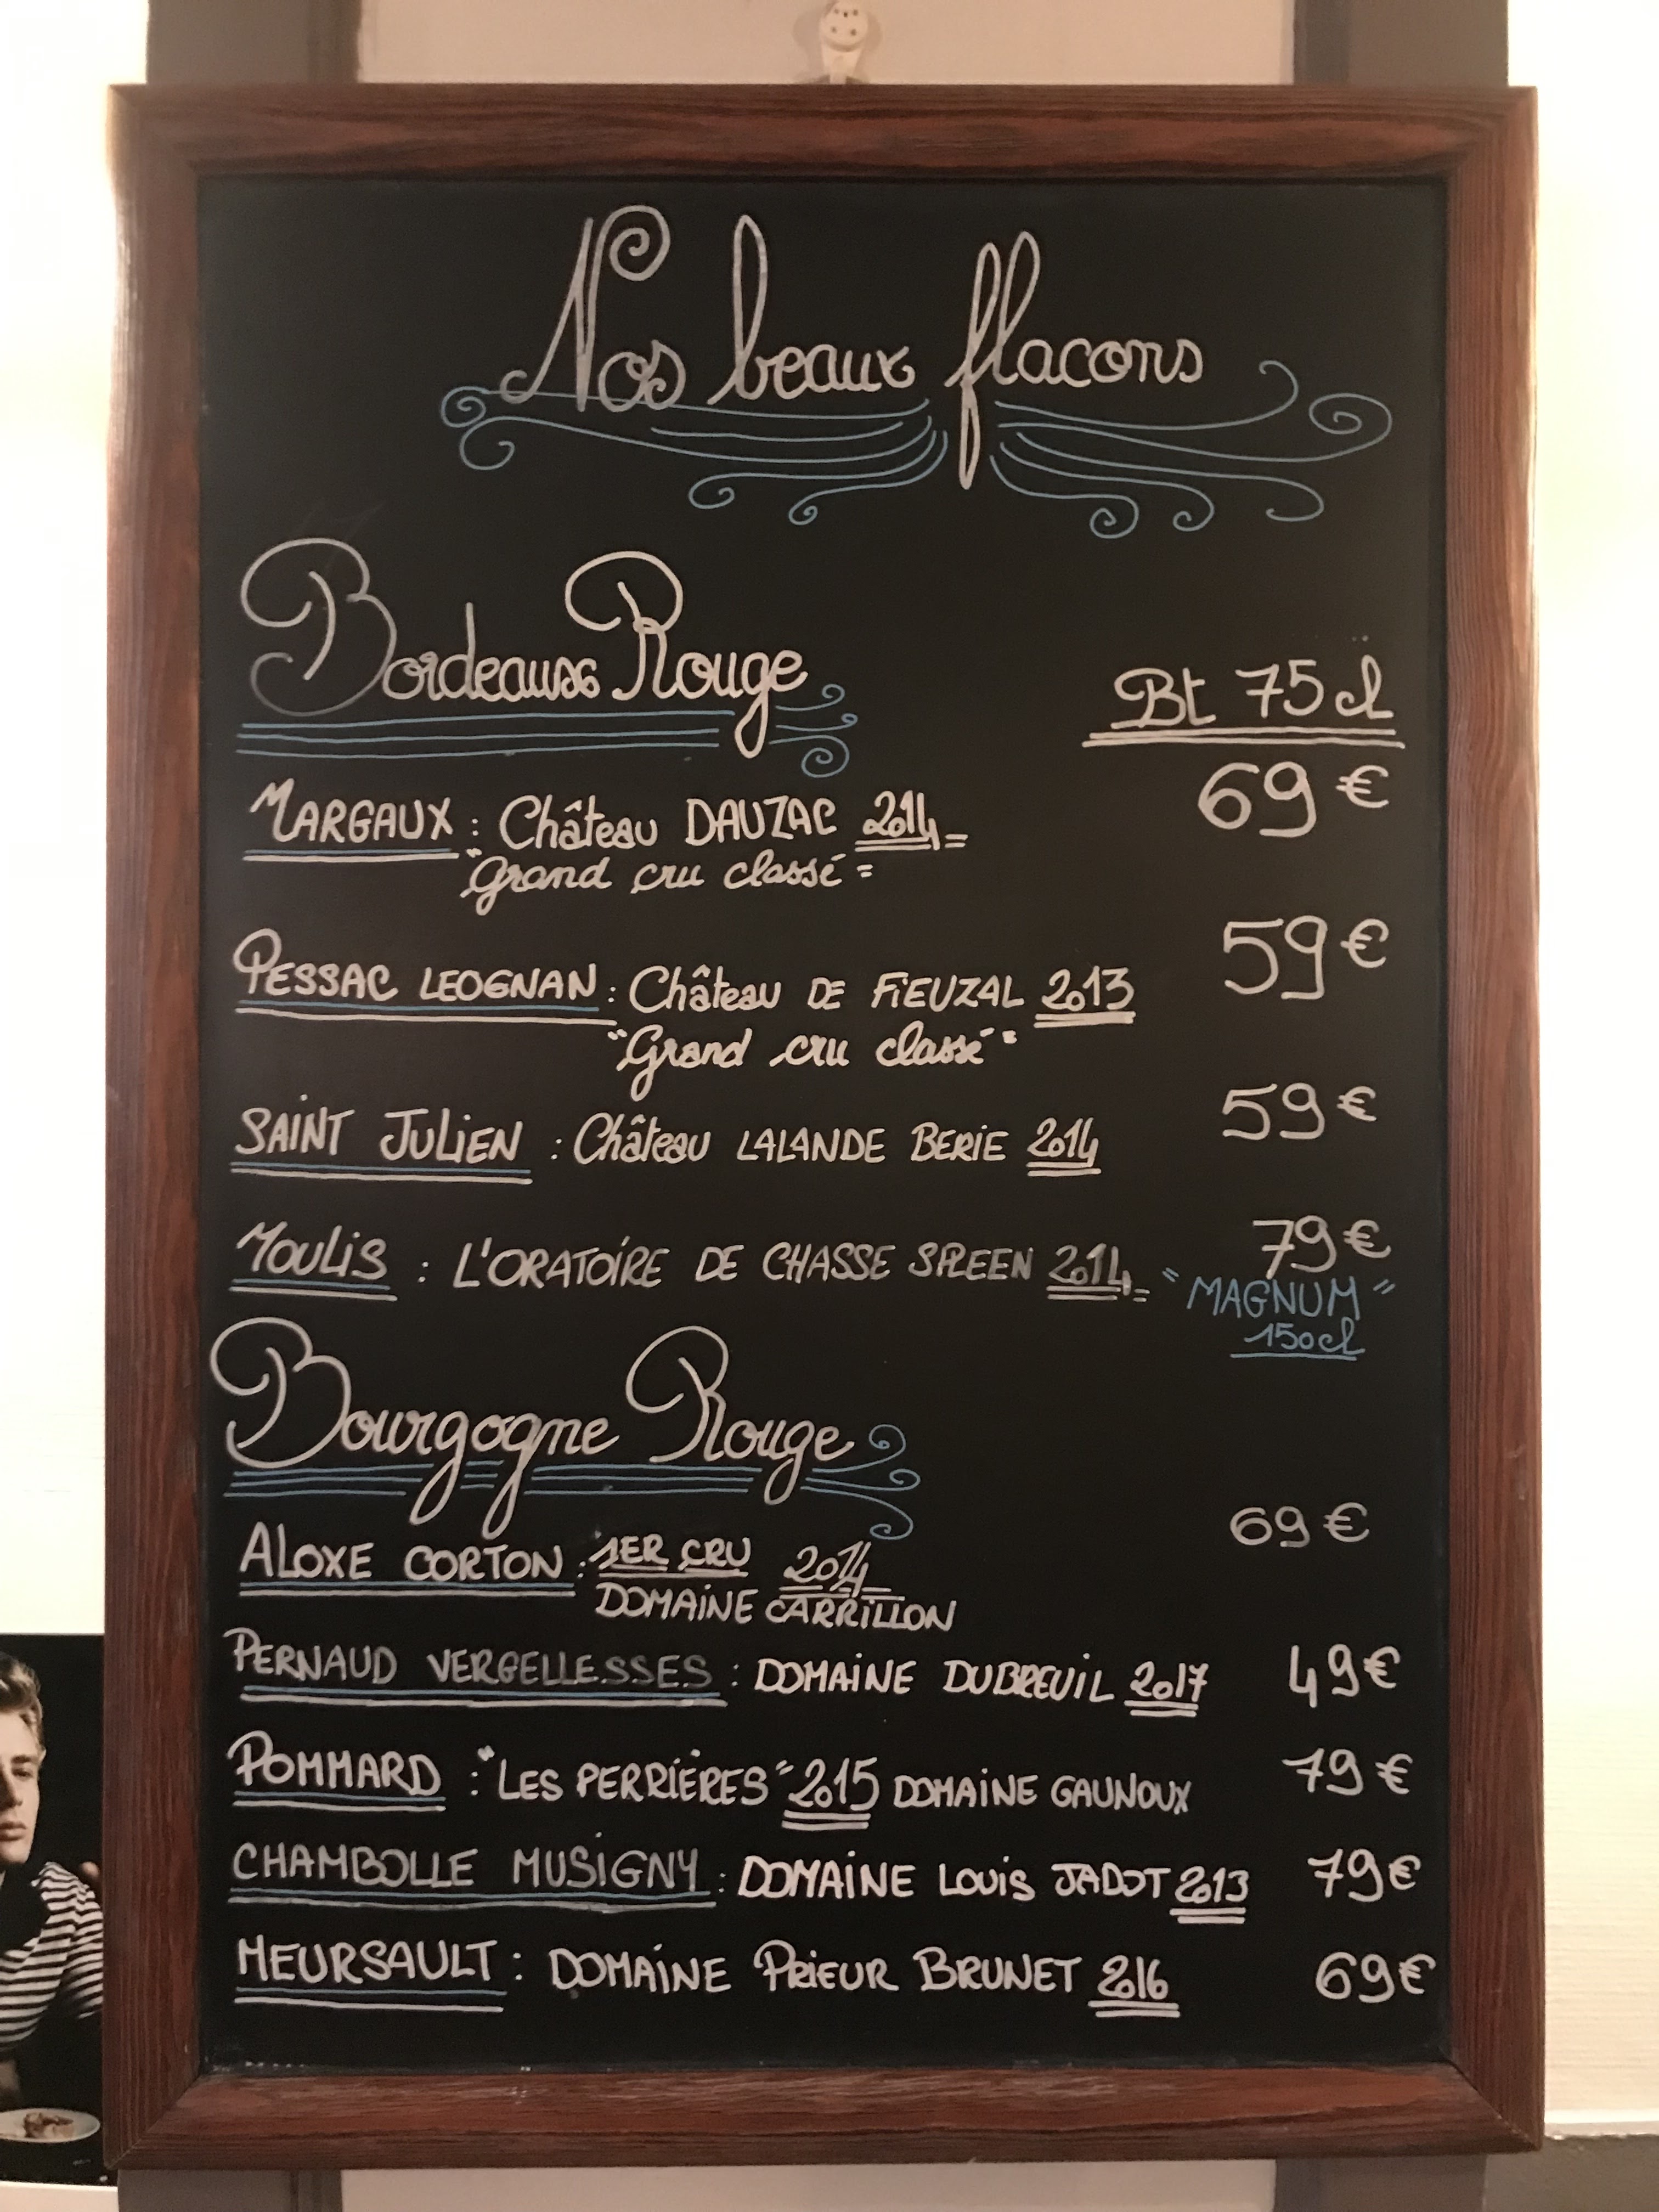 Nos beaux flacons
Bordeaux Rouge
Bt 75 cl
MARGAUX : Château DAUZAC 2014 69 €
"Grand cru classé"
PESSAC LEOGNAN : Château DE FIEUZAL 2013 59 €
"Grand cru classé"
SAINT JULIEN : Château LALANDE BERIE 2014 59 €
MOULIS : L'ORATOIRE DE CHASSE SPLEEN 2014 79 €
"MAGNUM"
150cl
Bourgogne Rouge
ALOXE CORTON : 1ER CRU 2014 69 €
DOMAINE CARRILLON
PERNAUD VERGELLESSES : DOMAINE DUBREUIL 2017 49 €
POMMARD : "LES PERRIÈRES" 2015 DOMAINE GAUNOUX 79 €
CHAMBOLLE MUSIGNY : DOMAINE LOUIS JADOT 2013 79 €
MEURSAULT : DOMAINE PRIEUR BRUNET 2016 69 €